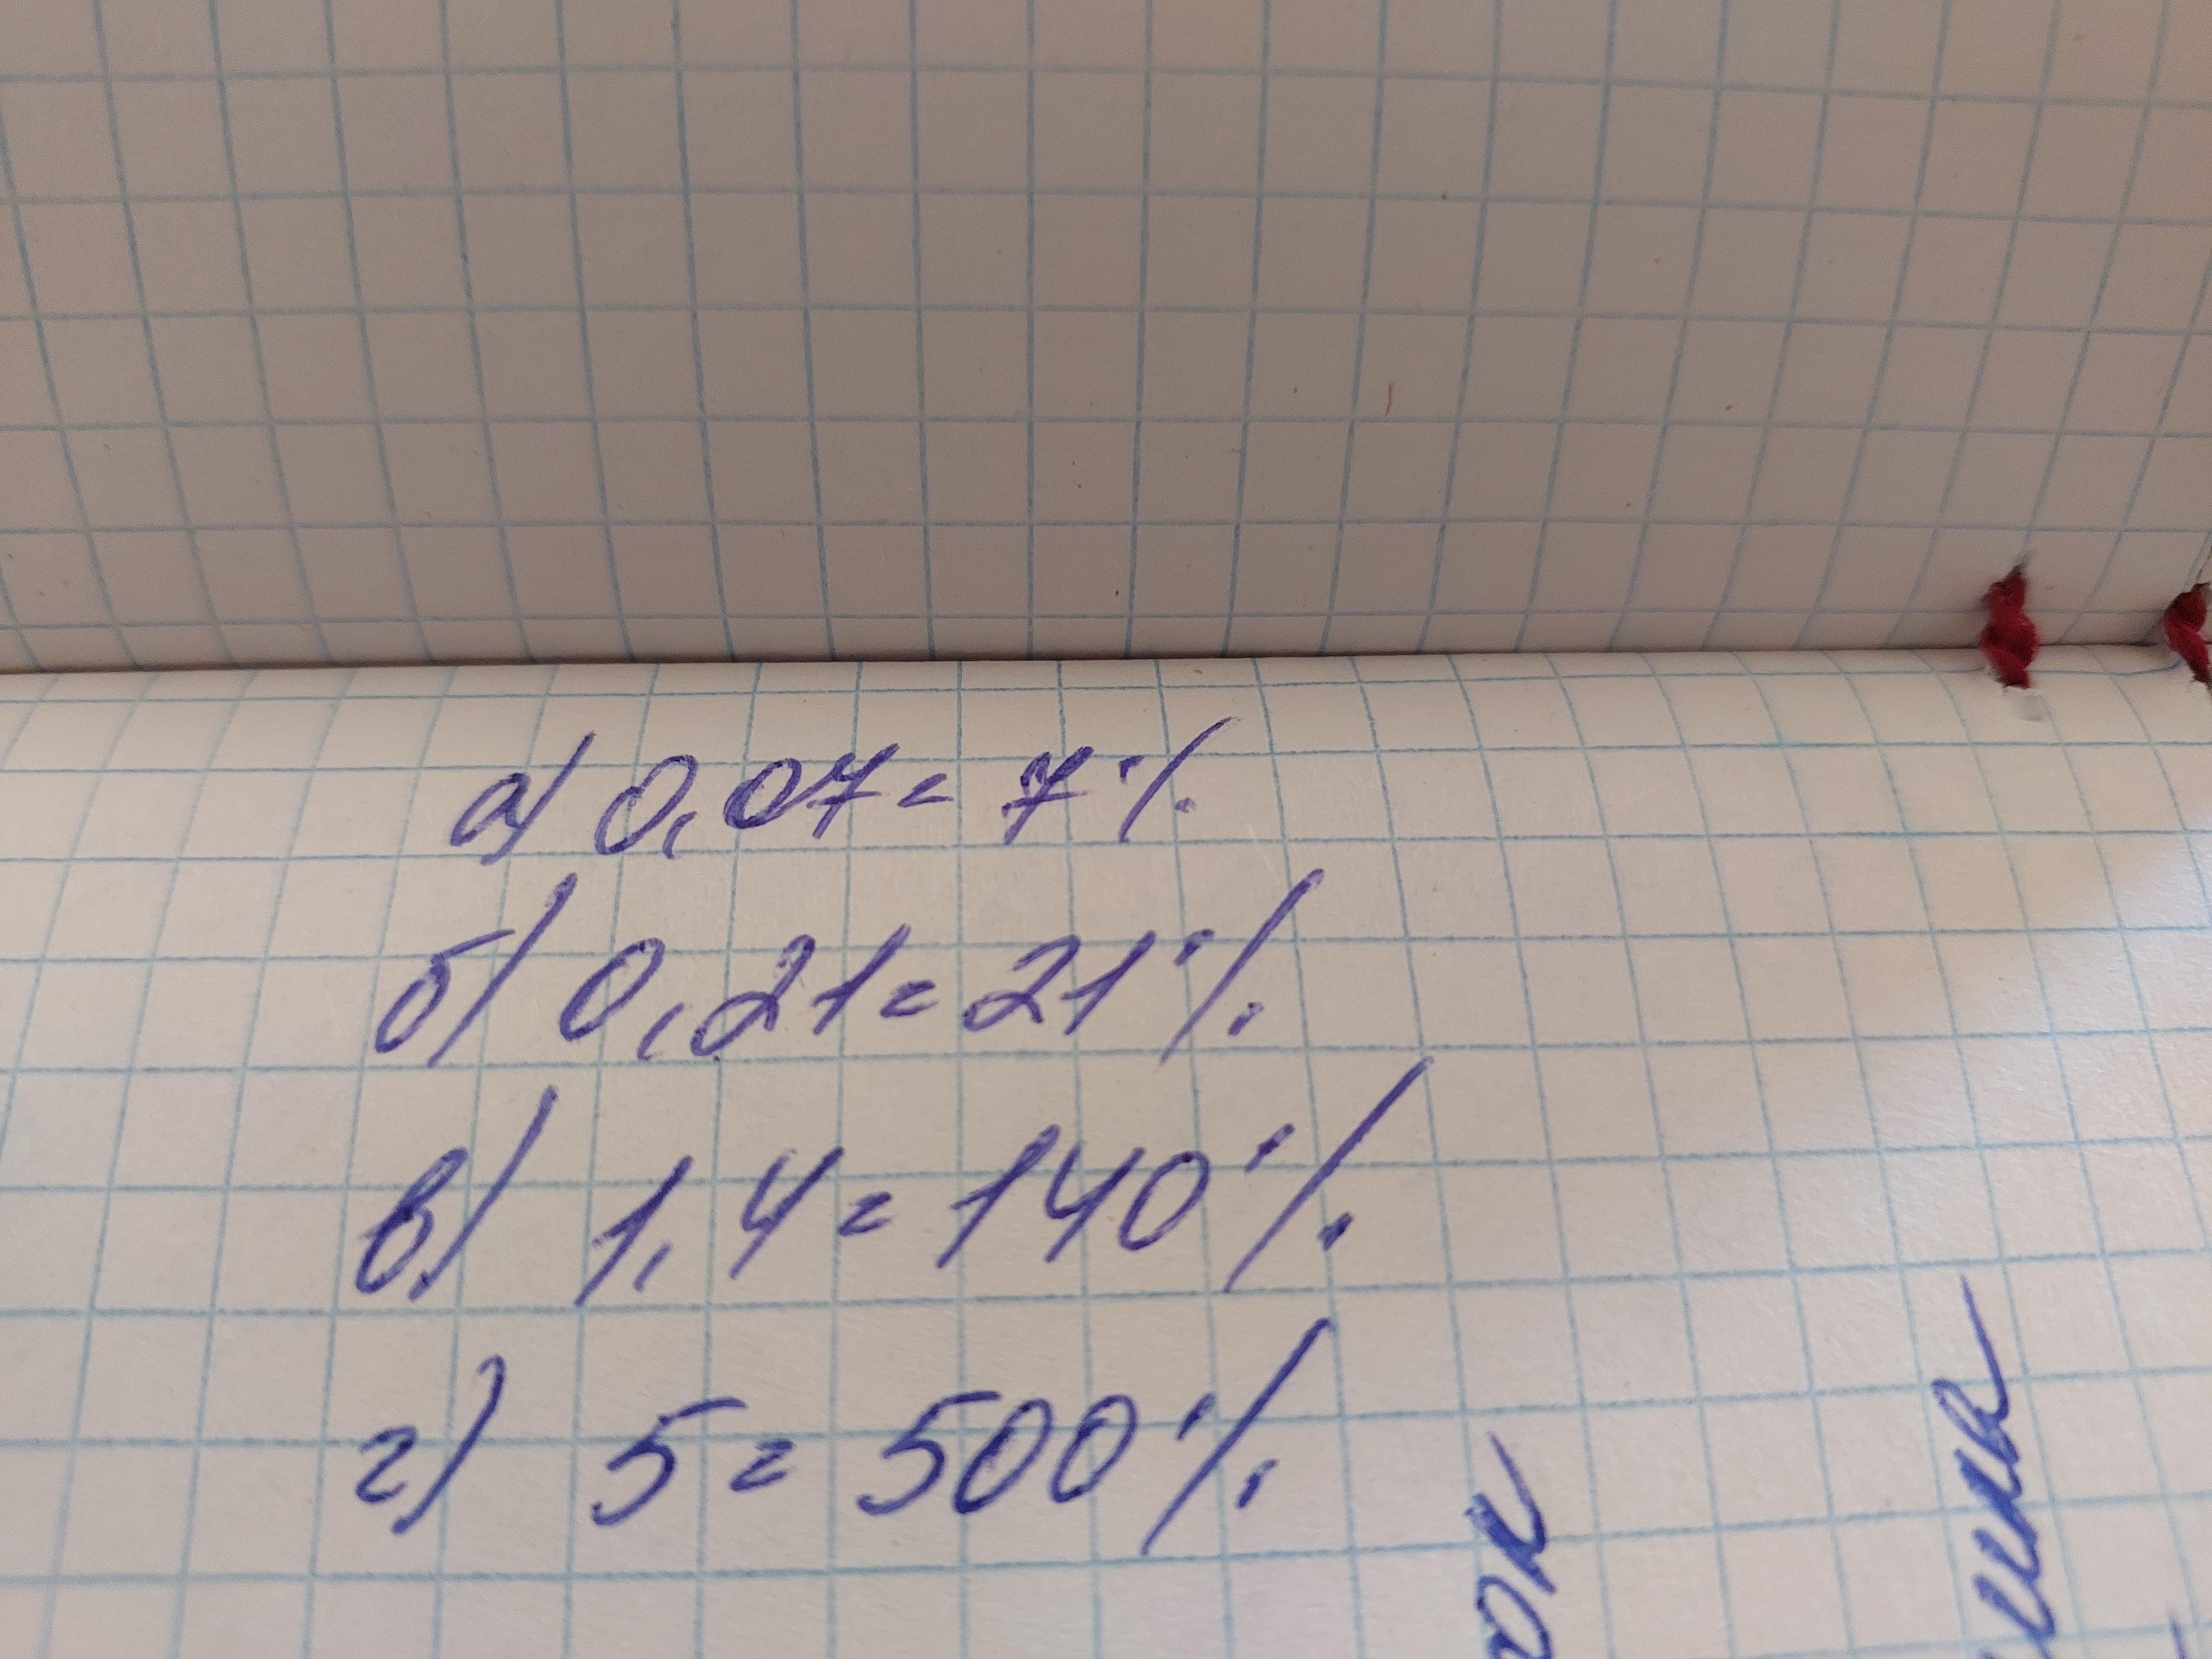 а) 0,07 = 7%
б) 0,21 = 21%
в) 1,4 = 140%
г) 5 = 500%